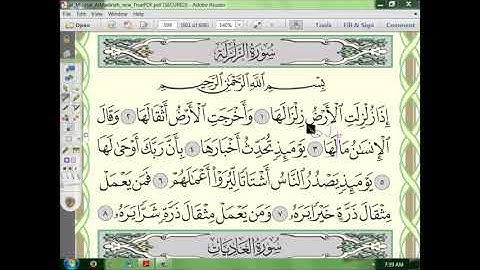 Al_Mushaf_AlMadinah_new_TruePDF.pdf (SECURED) - Adobe Reader
Open
599
(601 of 608)
140%
Tools
Fill & Sign
Comment
سُورَةُ الزَّلْزَلَةِ
بِسْمِ ٱللَّهِ ٱلرَّحْمَٰنِ ٱلرَّحِيمِ
إِذَا زُلْزِلَتِ ٱلْأَرْضُ زِلْزَالَهَا ١ وَأَخْرَجَتِ ٱلْأَرْضُ أَثْقَالَهَا ٢ وَقَالَ
ٱلْإِنسَٰنُ مَا لَهَا ٣ يَوْمَئِذٍ تُحَدِّثُ أَخْبَارَهَا ٤ بِأَنَّ رَبَّكَ أَوْحَىٰ لَهَا
٥ يَوْمَئِذٍ يَصْدُرُ ٱلنَّاسُ أَشْتَاتًا لِّيُرَوْا۟ أَعْمَٰلَهُمْ ٦ فَمَن يَعْمَلْ
مِثْقَالَ ذَرَّةٍ خَيْرًا يَرَهُۥ ٧ وَمَن يَعْمَلْ مِثْقَالَ ذَرَّةٍ شَرًّا يَرَهُۥ ٨
سُورَةُ العَادِيَاتِ
7:39 AM